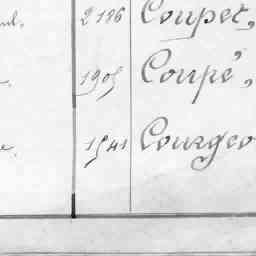 2186 Coupec,
1905 Coupé,
1541 Courgeo